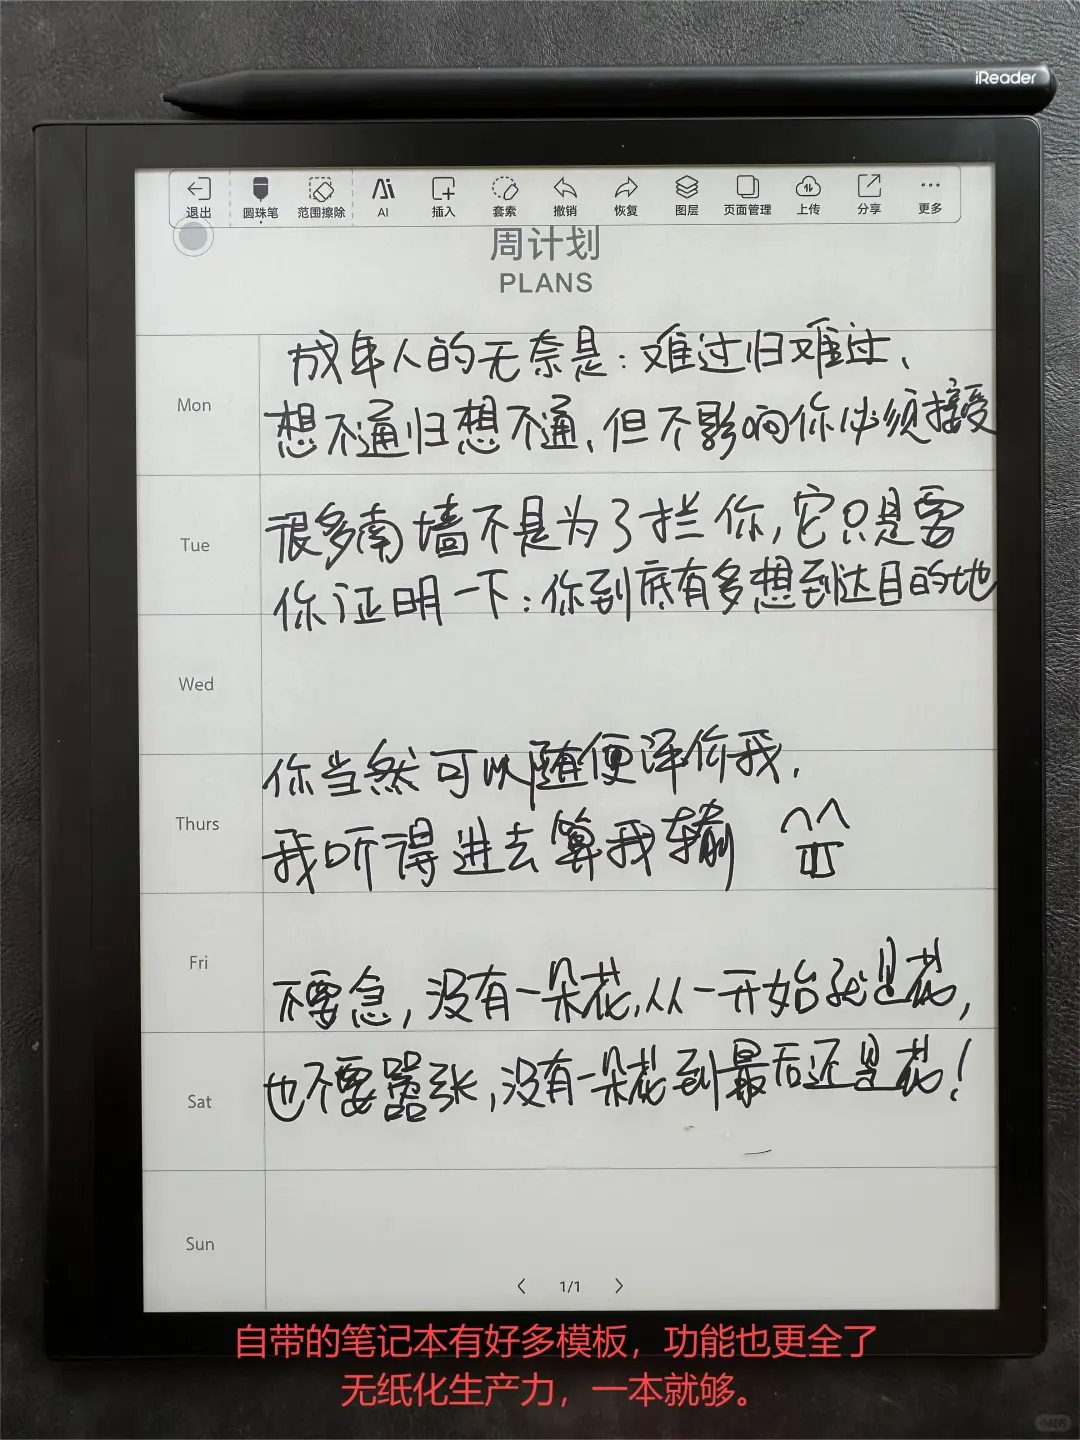 iReader
退出 圆珠笔 范围擦除 AI 插入 套索 撤销 恢复 图层 页面管理 上传 分享 更多
周计划
PLANS
Mon
成年人的无奈是：难过归难过、
想不通归想不通、但不影响你必须接受
Tue
很多南墙不是为了拦你，它只是要
你证明一下：你到底有多想到达目的地
Wed
Thurs
你当然可以随便评价我，
我听得进去算我输
Fri
不要急，没有一朵花，从一开始就是花，
Sat
也不要嚣张，没有一朵花到最后还是花！
Sun
1/1
自带的笔记本有好多模板，功能也更全了
无纸化生产力，一本就够。
小红书